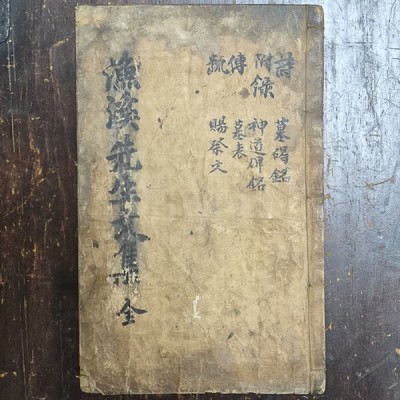 詩 墓碣銘
附錄 神道碑銘
傳 墓表
賜祭文
漁溪先生文集 全